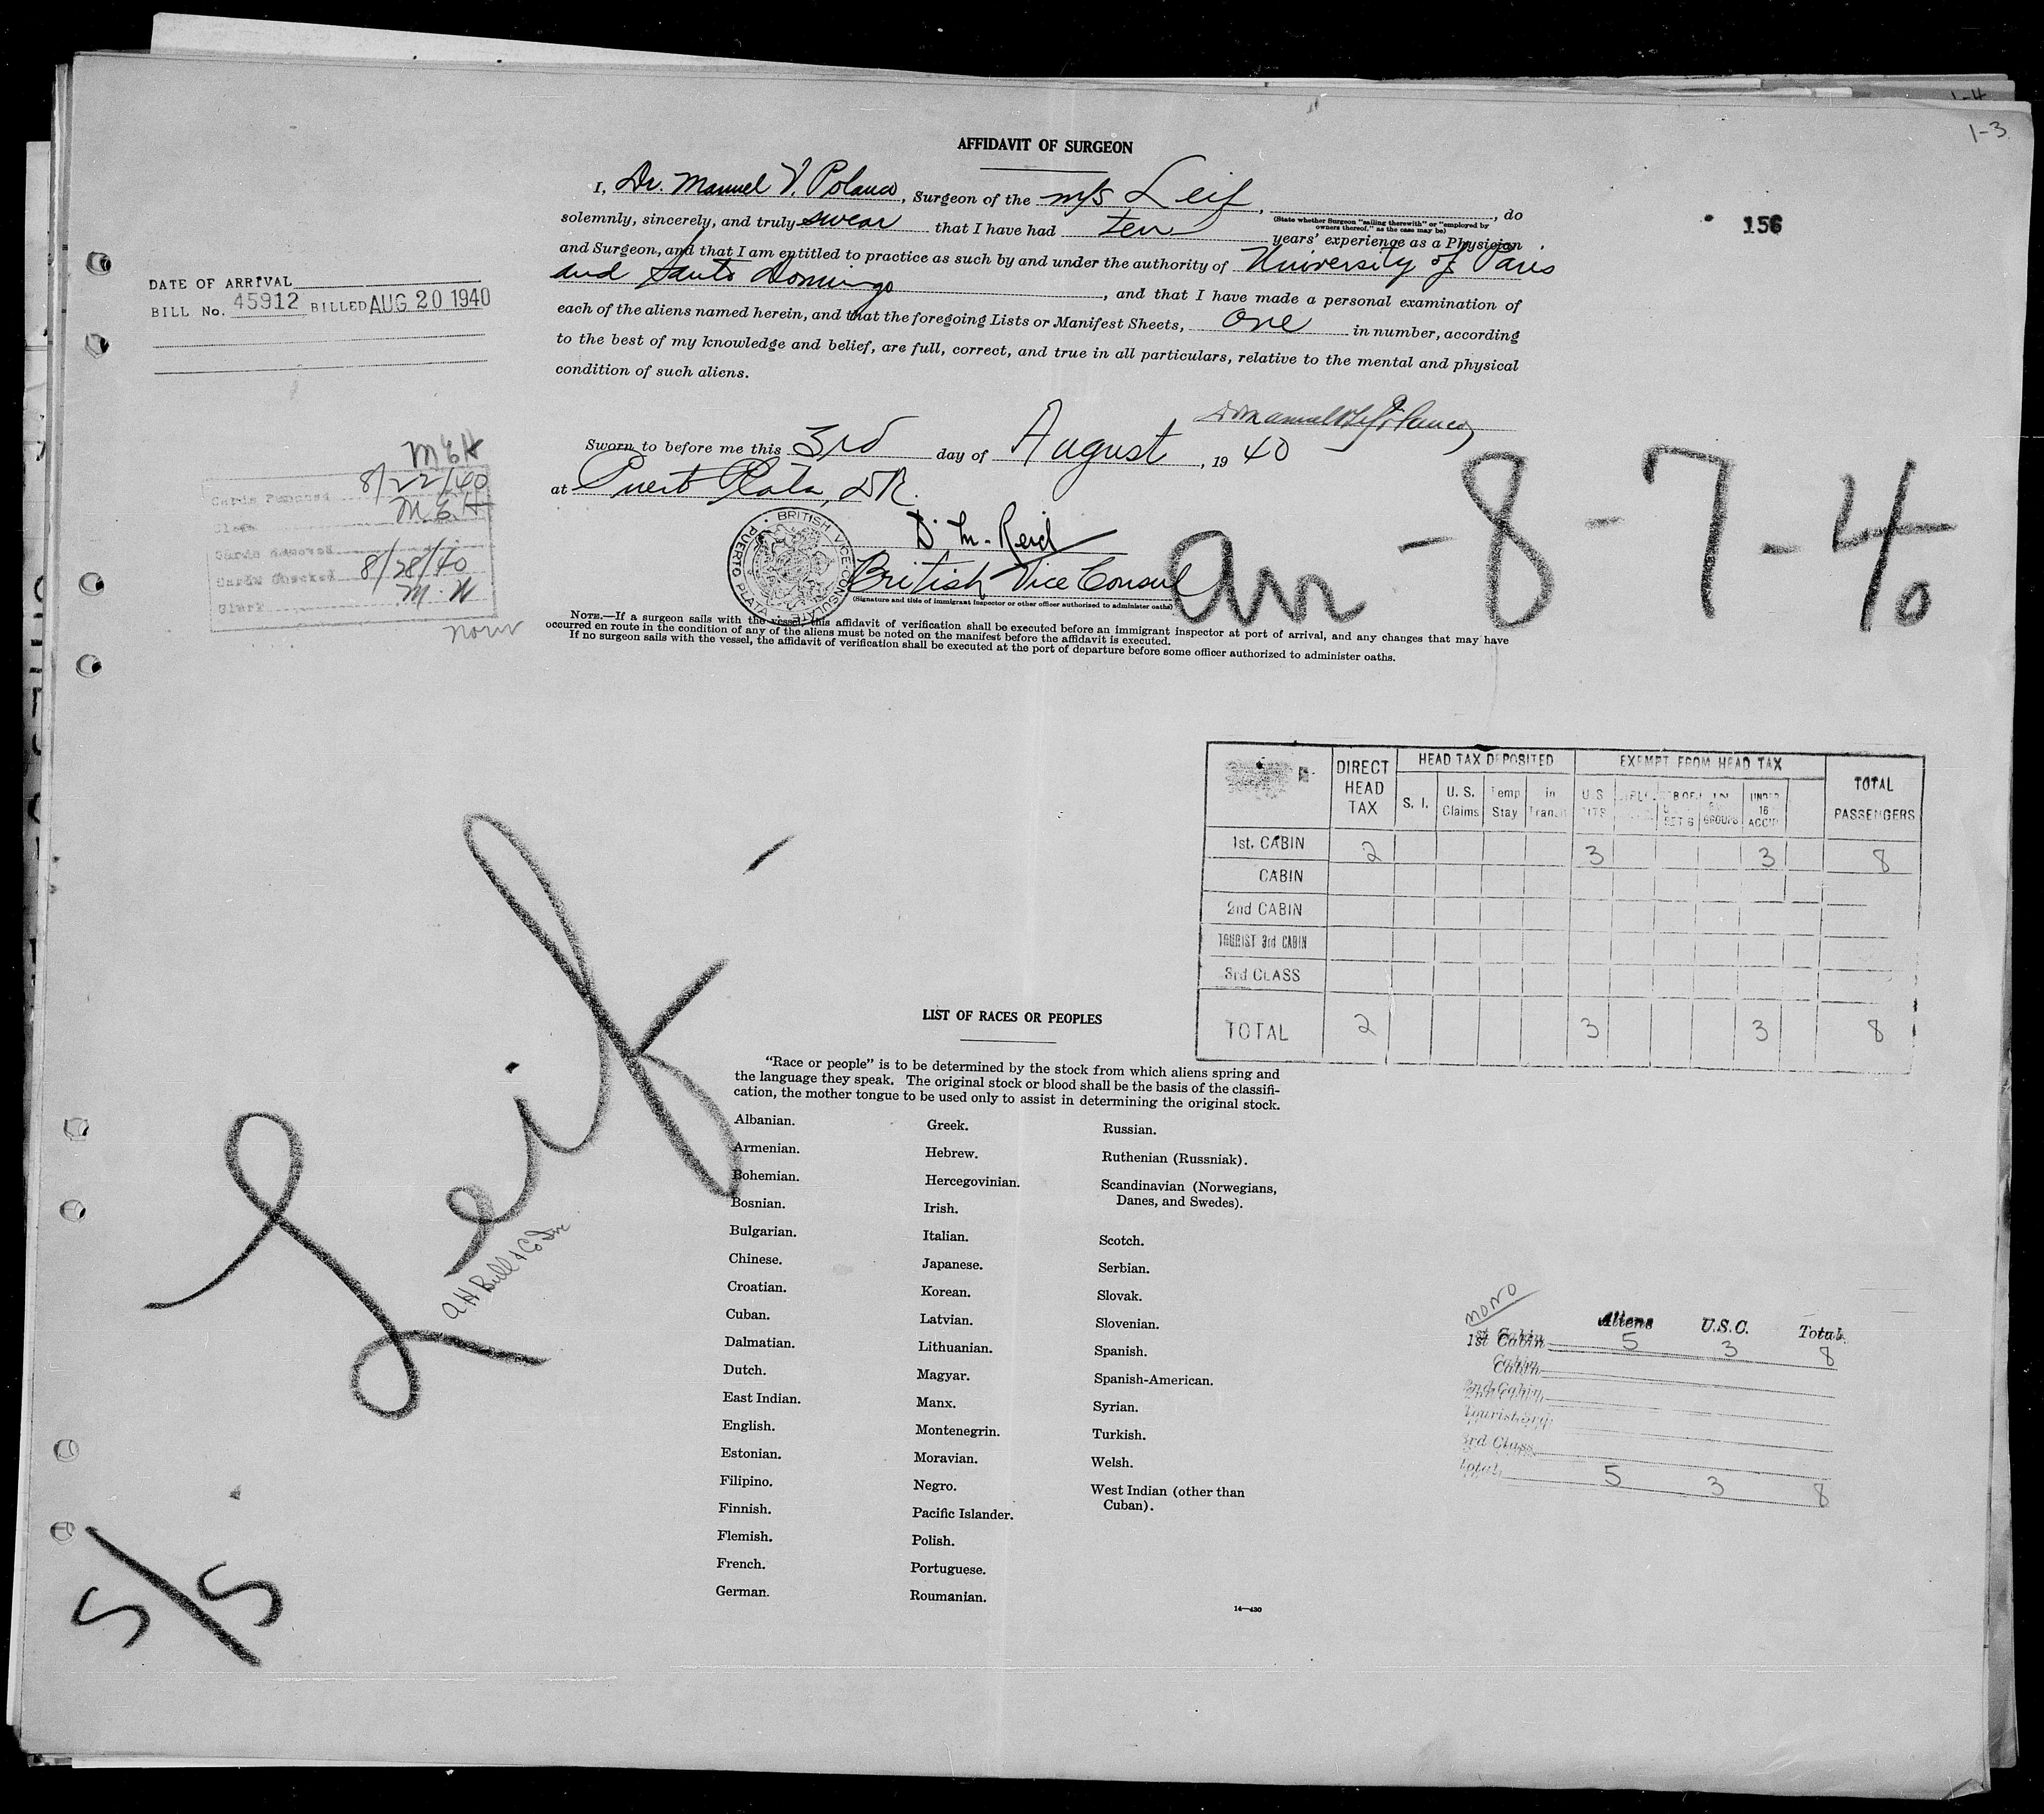 1-3
AFFIDAVIT OF SURGEON
I, Dr. Manuel V. Polanco, Surgeon of the m/s Leif, , do
(State whether Surgeon "sailing therewith" or "employed by
owners thereof," as the case may be)
solemnly, sincerely, and truly swear that I have had ten years' experience as a Physician
and Surgeon, and that I am entitled to practice as such by and under the authority of University of Paris
and Santo Domingo, and that I have made a personal examination of
each of the aliens named herein, and that the foregoing Lists or Manifest Sheets, One in number, according
to the best of my knowledge and belief, are full, correct, and true in all particulars, relative to the mental and physical
condition of such aliens.
156
DATE OF ARRIVAL
BILL No. 45912 BILLED AUG 20 1940
Sworn to before me this 3rd day of August, 19 40
at Puerto Plata, D.R.
D. M. Reid
British Vice Consul
(Signature and title of immigrant inspector or other officer authorized to administer oaths)
BRITISH VICE CONSULATE
PUERTO PLATA
arr - 8 - 7 - 40
M E H
8/22/40
Clerk M. E. H
Cards Checked 8/28/40
Clerk M. N
NOTE.—If a surgeon sails with the vessel, this affidavit of verification shall be executed before an immigrant inspector at port of arrival, and any changes that may have
occurred en route in the condition of any of the aliens must be noted on the manifest before the affidavit is executed.
If no surgeon sails with the vessel, the affidavit of verification shall be executed at the port of departure before some officer authorized to administer oaths.
DIRECT HEAD TAX
HEAD TAX DEPOSITED
EXEMPT FROM HEAD TAX
TOTAL PASSENGERS
S. I.
U. S. Claims
Temp Stay
in Transit
GROUPS
UNDER 16 ACC'P
1st. CABIN 2 3 3 8
CABIN
2nd CABIN
TOURIST 3rd CABIN
3rd CLASS
TOTAL 2 3 3 8
S/S Leif
A H Bull & Co Inc
LIST OF RACES OR PEOPLES
"Race or people" is to be determined by the stock from which aliens spring and
the language they speak. The original stock or blood shall be the basis of the classifi-
cation, the mother tongue to be used only to assist in determining the original stock.
Albanian.
Armenian.
Bohemian.
Bosnian.
Bulgarian.
Chinese.
Croatian.
Cuban.
Dalmatian.
Dutch.
East Indian.
English.
Estonian.
Filipino.
Finnish.
Flemish.
French.
German.
Greek.
Hebrew.
Hercegovinian.
Irish.
Italian.
Japanese.
Korean.
Latvian.
Lithuanian.
Magyar.
Manx.
Montenegrin.
Moravian.
Negro.
Pacific Islander.
Polish.
Portuguese.
Roumanian.
Russian.
Ruthenian (Russniak).
Scandinavian (Norwegians,
Danes, and Swedes).
Scotch.
Serbian.
Slovak.
Slovenian.
Spanish.
Spanish-American.
Syrian.
Turkish.
Welsh.
West Indian (other than
Cuban).
14—430
Aliens U.S.C. Total
1st Cabin 5 3 8
Cabin
2nd Cabin
Tourist 3rd
3rd Class
Total 5 3 8